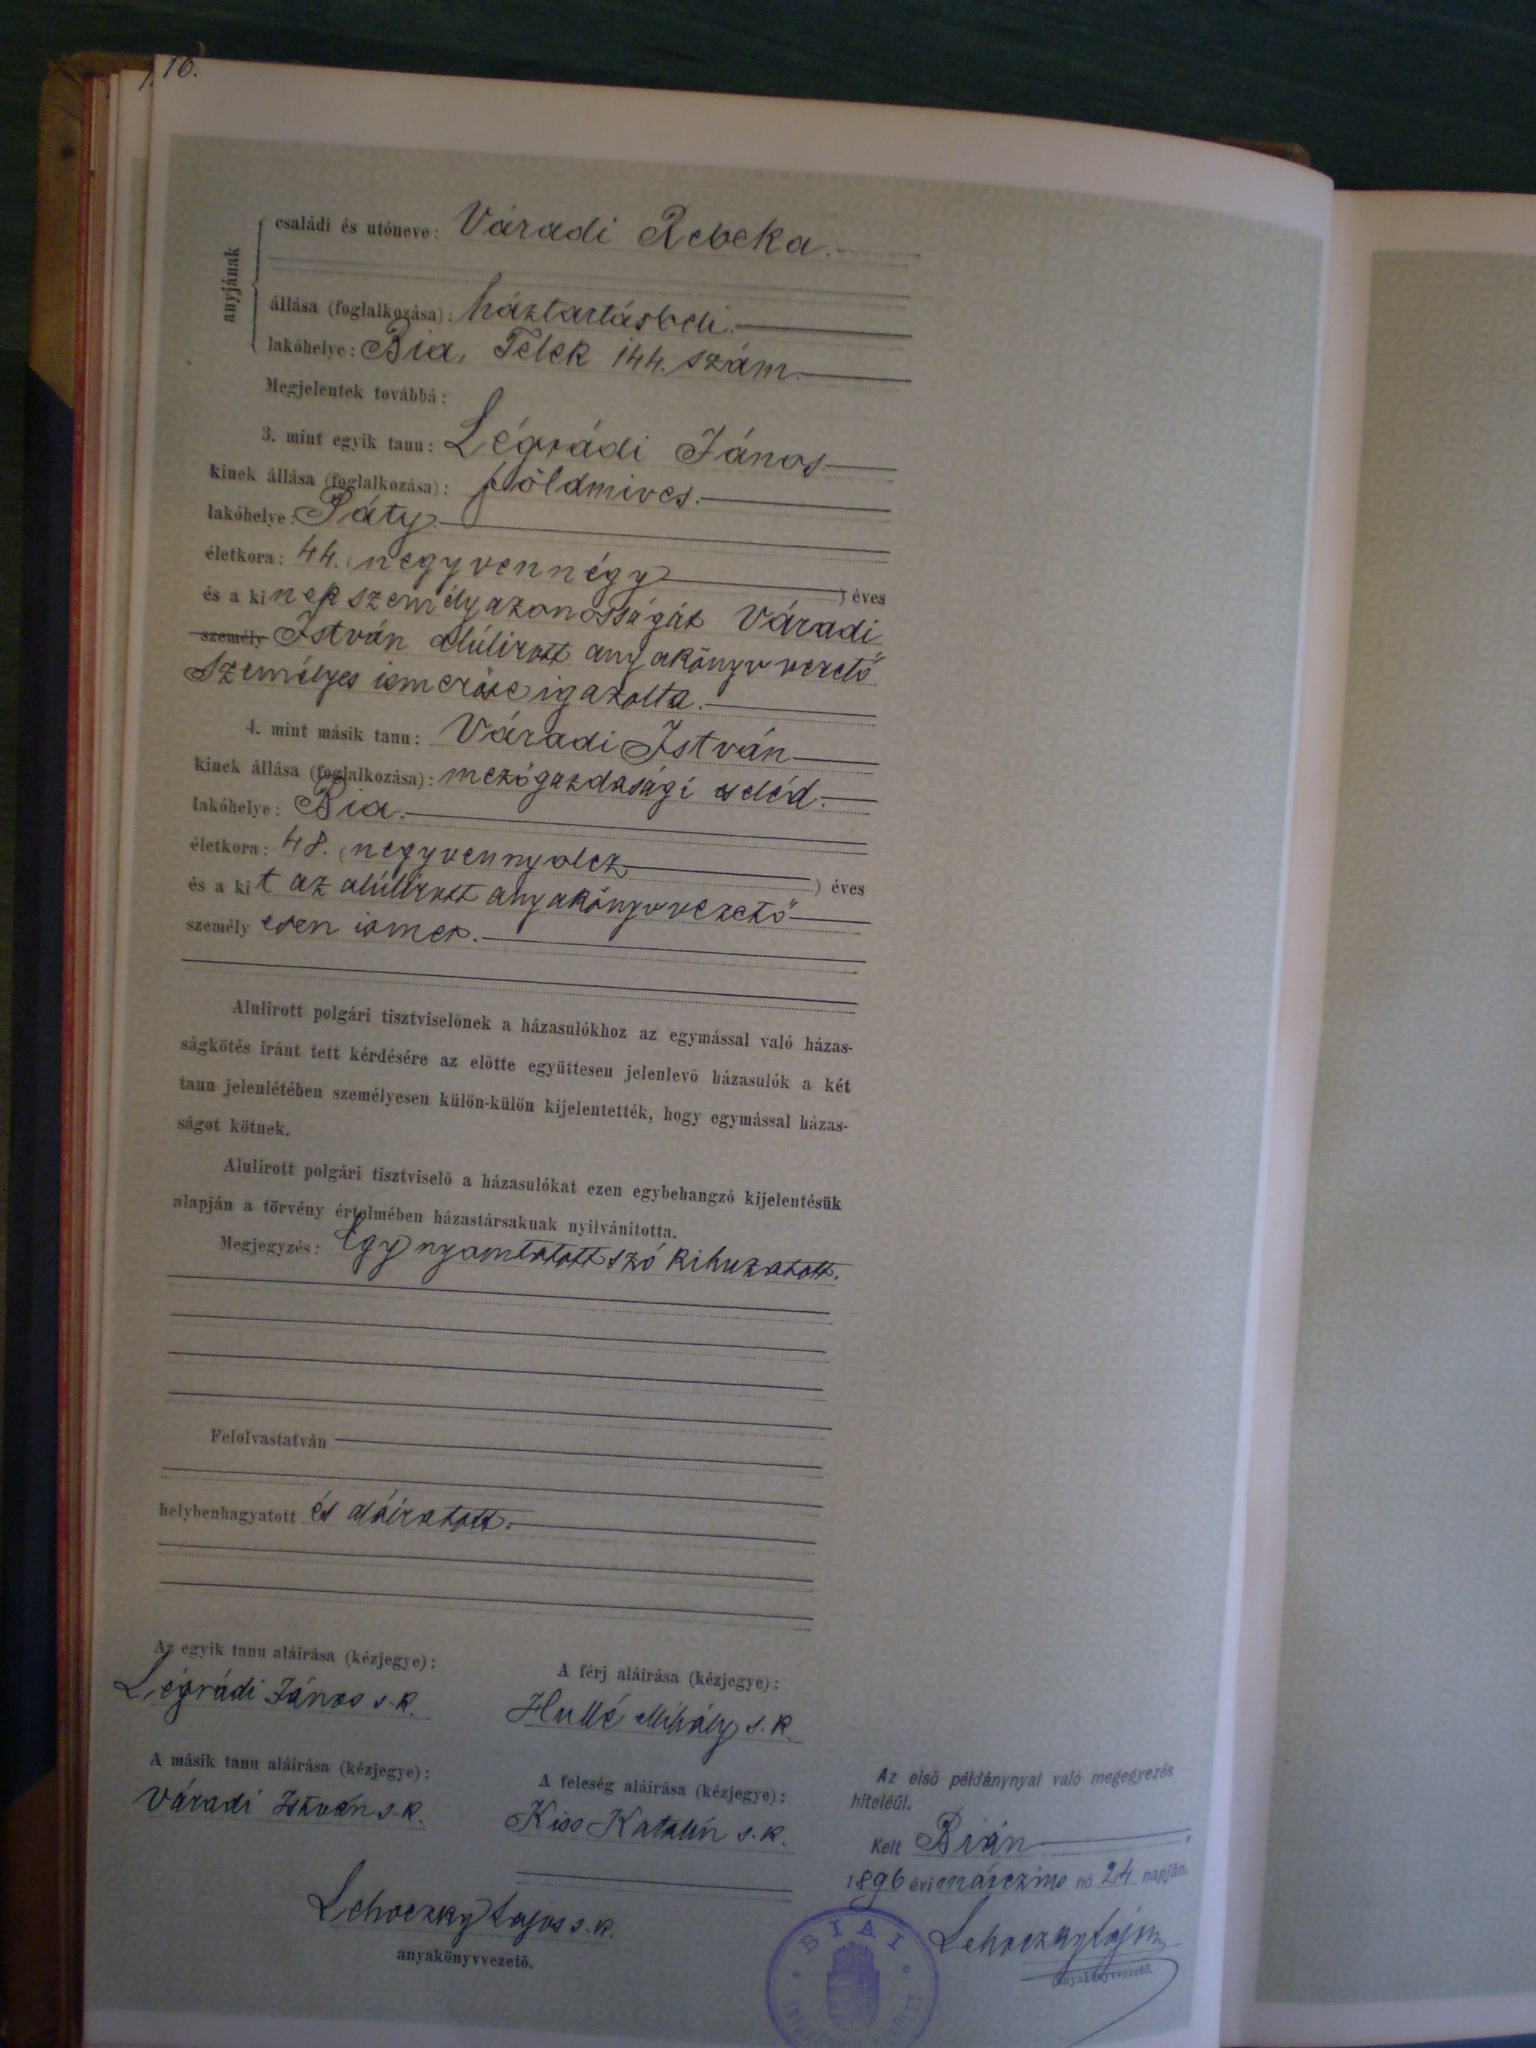 16.
anyjának
családi és utóneve: Váradi Rebeka.
állása (foglalkozása): háztartásbeli.
lakóhelye: Bia, Telek 144. szám.
Megjelentek továbbá:
3. mint egyik tanu: Légrádi János
kinek állása (foglalkozása): földmives.
lakóhelye: Páty.
életkora: 44. (negyvennégy) éves
és a kinek személyazonosságát Váradi
személy István alúlirott anyakönyvvezető
személyes ismerőse igazolta.
4. mint másik tanu: Váradi István
kinek állása (foglalkozása): mezőgazdasági cseléd.
lakóhelye: Bia.
életkora: 48. (negyvennyolcz) éves
és a kit az alúlirott anyakönyvvezető
személyesen ismer.
Alulirott polgári tisztviselönek a házasulókhoz az egymással való házas-
ságkötés iránt tett kérdésére az elötte együttesen jelenlevö házasulók a két
tanu jelenlétében személyesen külön-külön kijelentették, hogy egymással házas-
ságot kötnek.
Alulirott polgári tisztviselö a házasulókat ezen egybehangzó kijelentésük
alapján a törvény értelmében házastársaknak nyilvánitotta.
Megjegyzés: Egy nyomtatott szó kihuzatott.
Felolvastatván
helybenhagyatott és aláiratott.
Az egyik tanu aláirása (kézjegye):
Légrádi János s. k.
A férj aláirása (kézjegye):
Hullé Mihály s. k.
A másik tanu aláirása (kézjegye):
Váradi István s. k.
A feleség aláirása (kézjegye):
Kiss Katalin s. k.
Lehoczky Lajos s. k.
anyakönyvvezetö.
Az elsö példánynyal való megegyezés
hiteléül.
Kelt Bián
1896 évi márczius hó 24 napján.
Lehoczky Lajos
anyakönyvvezetö.
BIAI